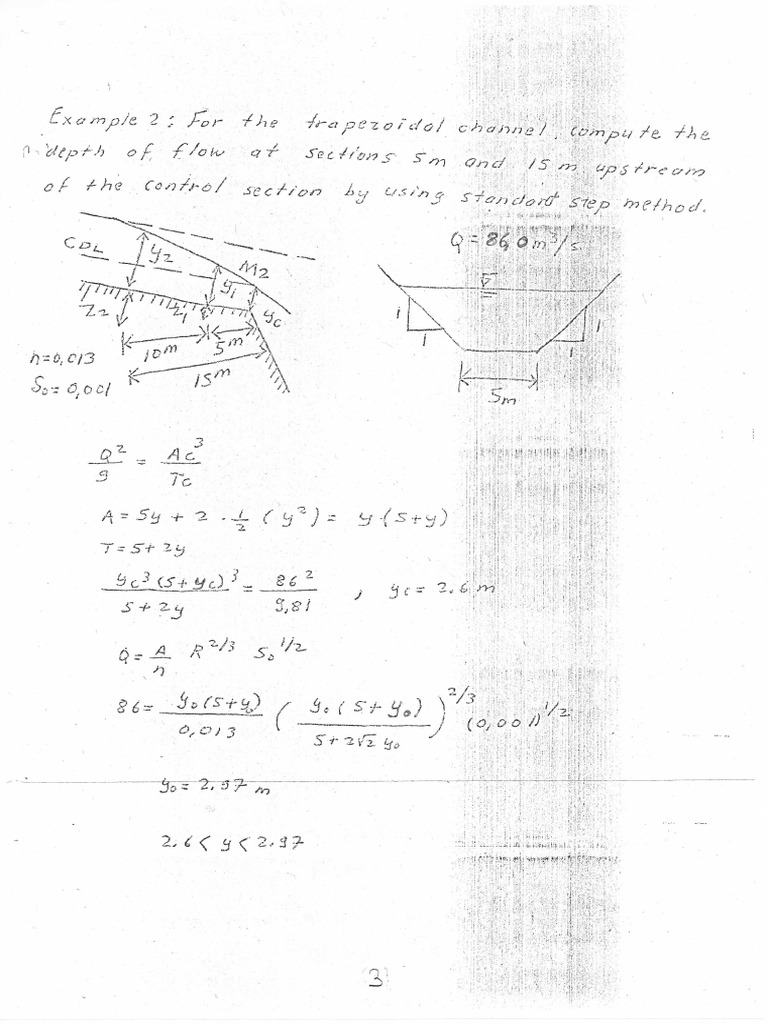 Example 2: For the trapezoidal channel, compute the
depth of flow at sections 5m and 15m upstream
of the control section by using standard step method.
Q = 86,0 m³/s
CDL
y2
M2
y1
yc
Z2
Z1
10m
5m
15m
n=0,013
S₀=0,001
1
1
1
1
5m
Q²/g = Ac³/Tc
A = 5y + 2 · 1/2 (y²) = y·(5+y)
T = 5+2y
yc³(5+yc)³/5+2y = 86²/9,81 , yc = 2.6 m
Q = A/n R^2/3 S₀^1/2
86 = y₀(5+y₀)/0,013 (y₀(5+y₀)/5+2√2 y₀)^2/3 (0,001)^1/2
y₀ = 2.97 m
2.6 < y < 2.97
3